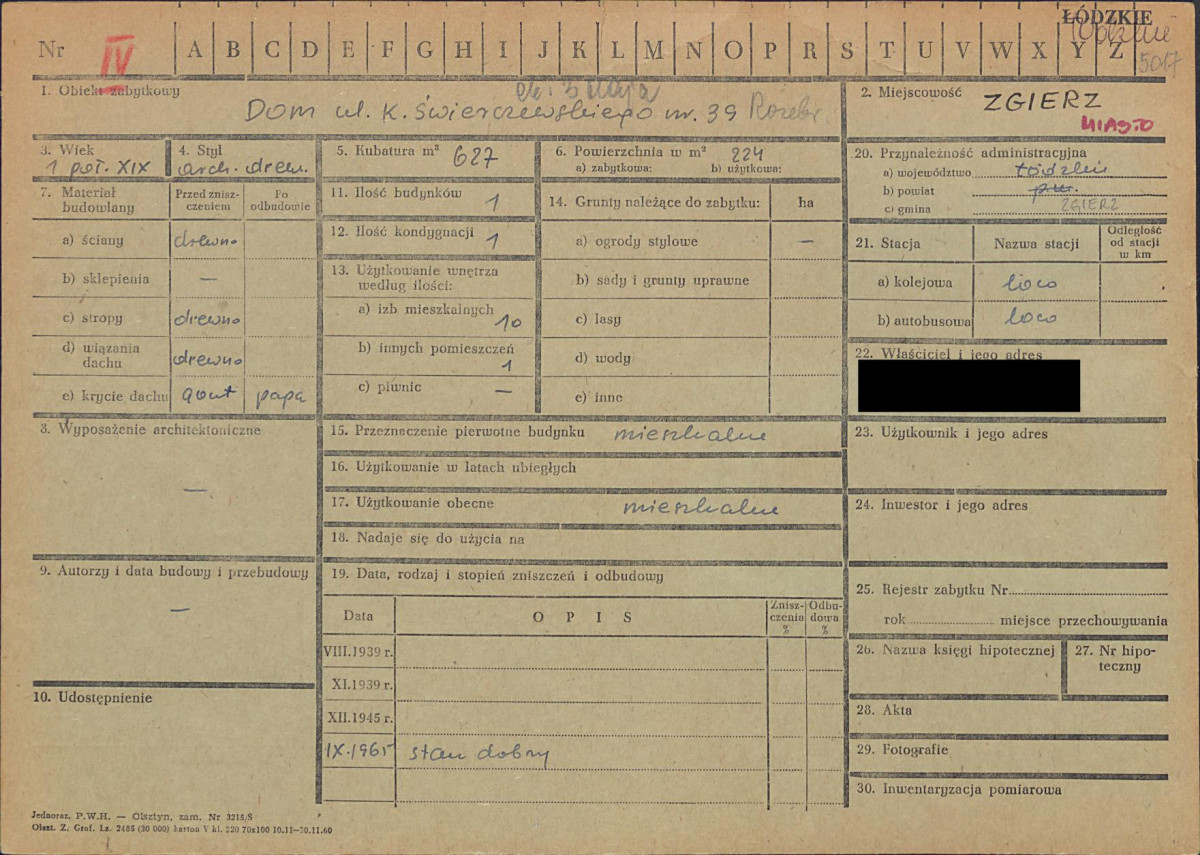 ŁÓDZKIE
Nr IV A B C D E F G H I J K L M N O P R S T U V W X Y Z
5017
1. Obiekt zabytkowy
3 Maja
Dom ul. K. Świerczewskiego nr. 39 Rozebr.
2. Miejscowość ZGIERZ
MIASTO
3. Wiek
1 poł. XIX
4. Styl
arch. drew.
5. Kubatura m³ 627
6. Powierzchnia w m² 224
a) zabytkowa: b) użytkowa:
7. Materiał budowlany
Przed znisz-
czeniem
Po
odbudowie
a) ściany drewno
b) sklepienia —
c) stropy drewno
d) wiązania
dachu drewno
e) krycie dachu gont papa
8. Wyposażenie architektoniczne
—
9. Autorzy i data budowy i przebudowy
—
10. Udostępnienie
11. Ilość budynków 1
12. Ilość kondygnacji 1
13. Użytkowanie wnętrza
według ilości:
a) izb mieszkalnych 10
b) innych pomieszczeń 1
c) piwnic —
14. Grunty należące do zabytku: ha
a) ogrody stylowe —
b) sady i grunty uprawne
c) lasy
d) wody
e) inne
15. Przeznaczenie pierwotne budynku mieszkalne
16. Użytkowanie w latach ubiegłych
17. Użytkowanie obecne mieszkalne
18. Nadaje się do użycia na
19. Data, rodzaj i stopień zniszczeń i odbudowy
Data OPIS Znisz-
czenia
% Odbu-
dowa
%
VIII.1939 r.
XI.1939 r.
XII.1945 r.
IX.1965 stan dobry
20. Przynależność administracyjna
a) województwo łódzkie
b) powiat p.w.
c) gmina ZGIERZ
21. Stacja Nazwa stacji Odległość
od stacji
w km
a) kolejowa loco
b) autobusowa loco
22. Właściciel i jego adres
23. Użytkownik i jego adres
24. Inwestor i jego adres
25. Rejestr zabytku Nr
rok miejsce przechowywania
26. Nazwa księgi hipotecznej
27. Nr hipo-
teczny
28. Akta
29. Fotografie
30. Inwentaryzacja pomiarowa
Jednoraz. P.W.H. — Olsztyn, zam. Nr 3215/S
Olszt. Z. Graf. Lz. 2485 (30 000) karton V kl. 220 70x100 10.11—30.11.60